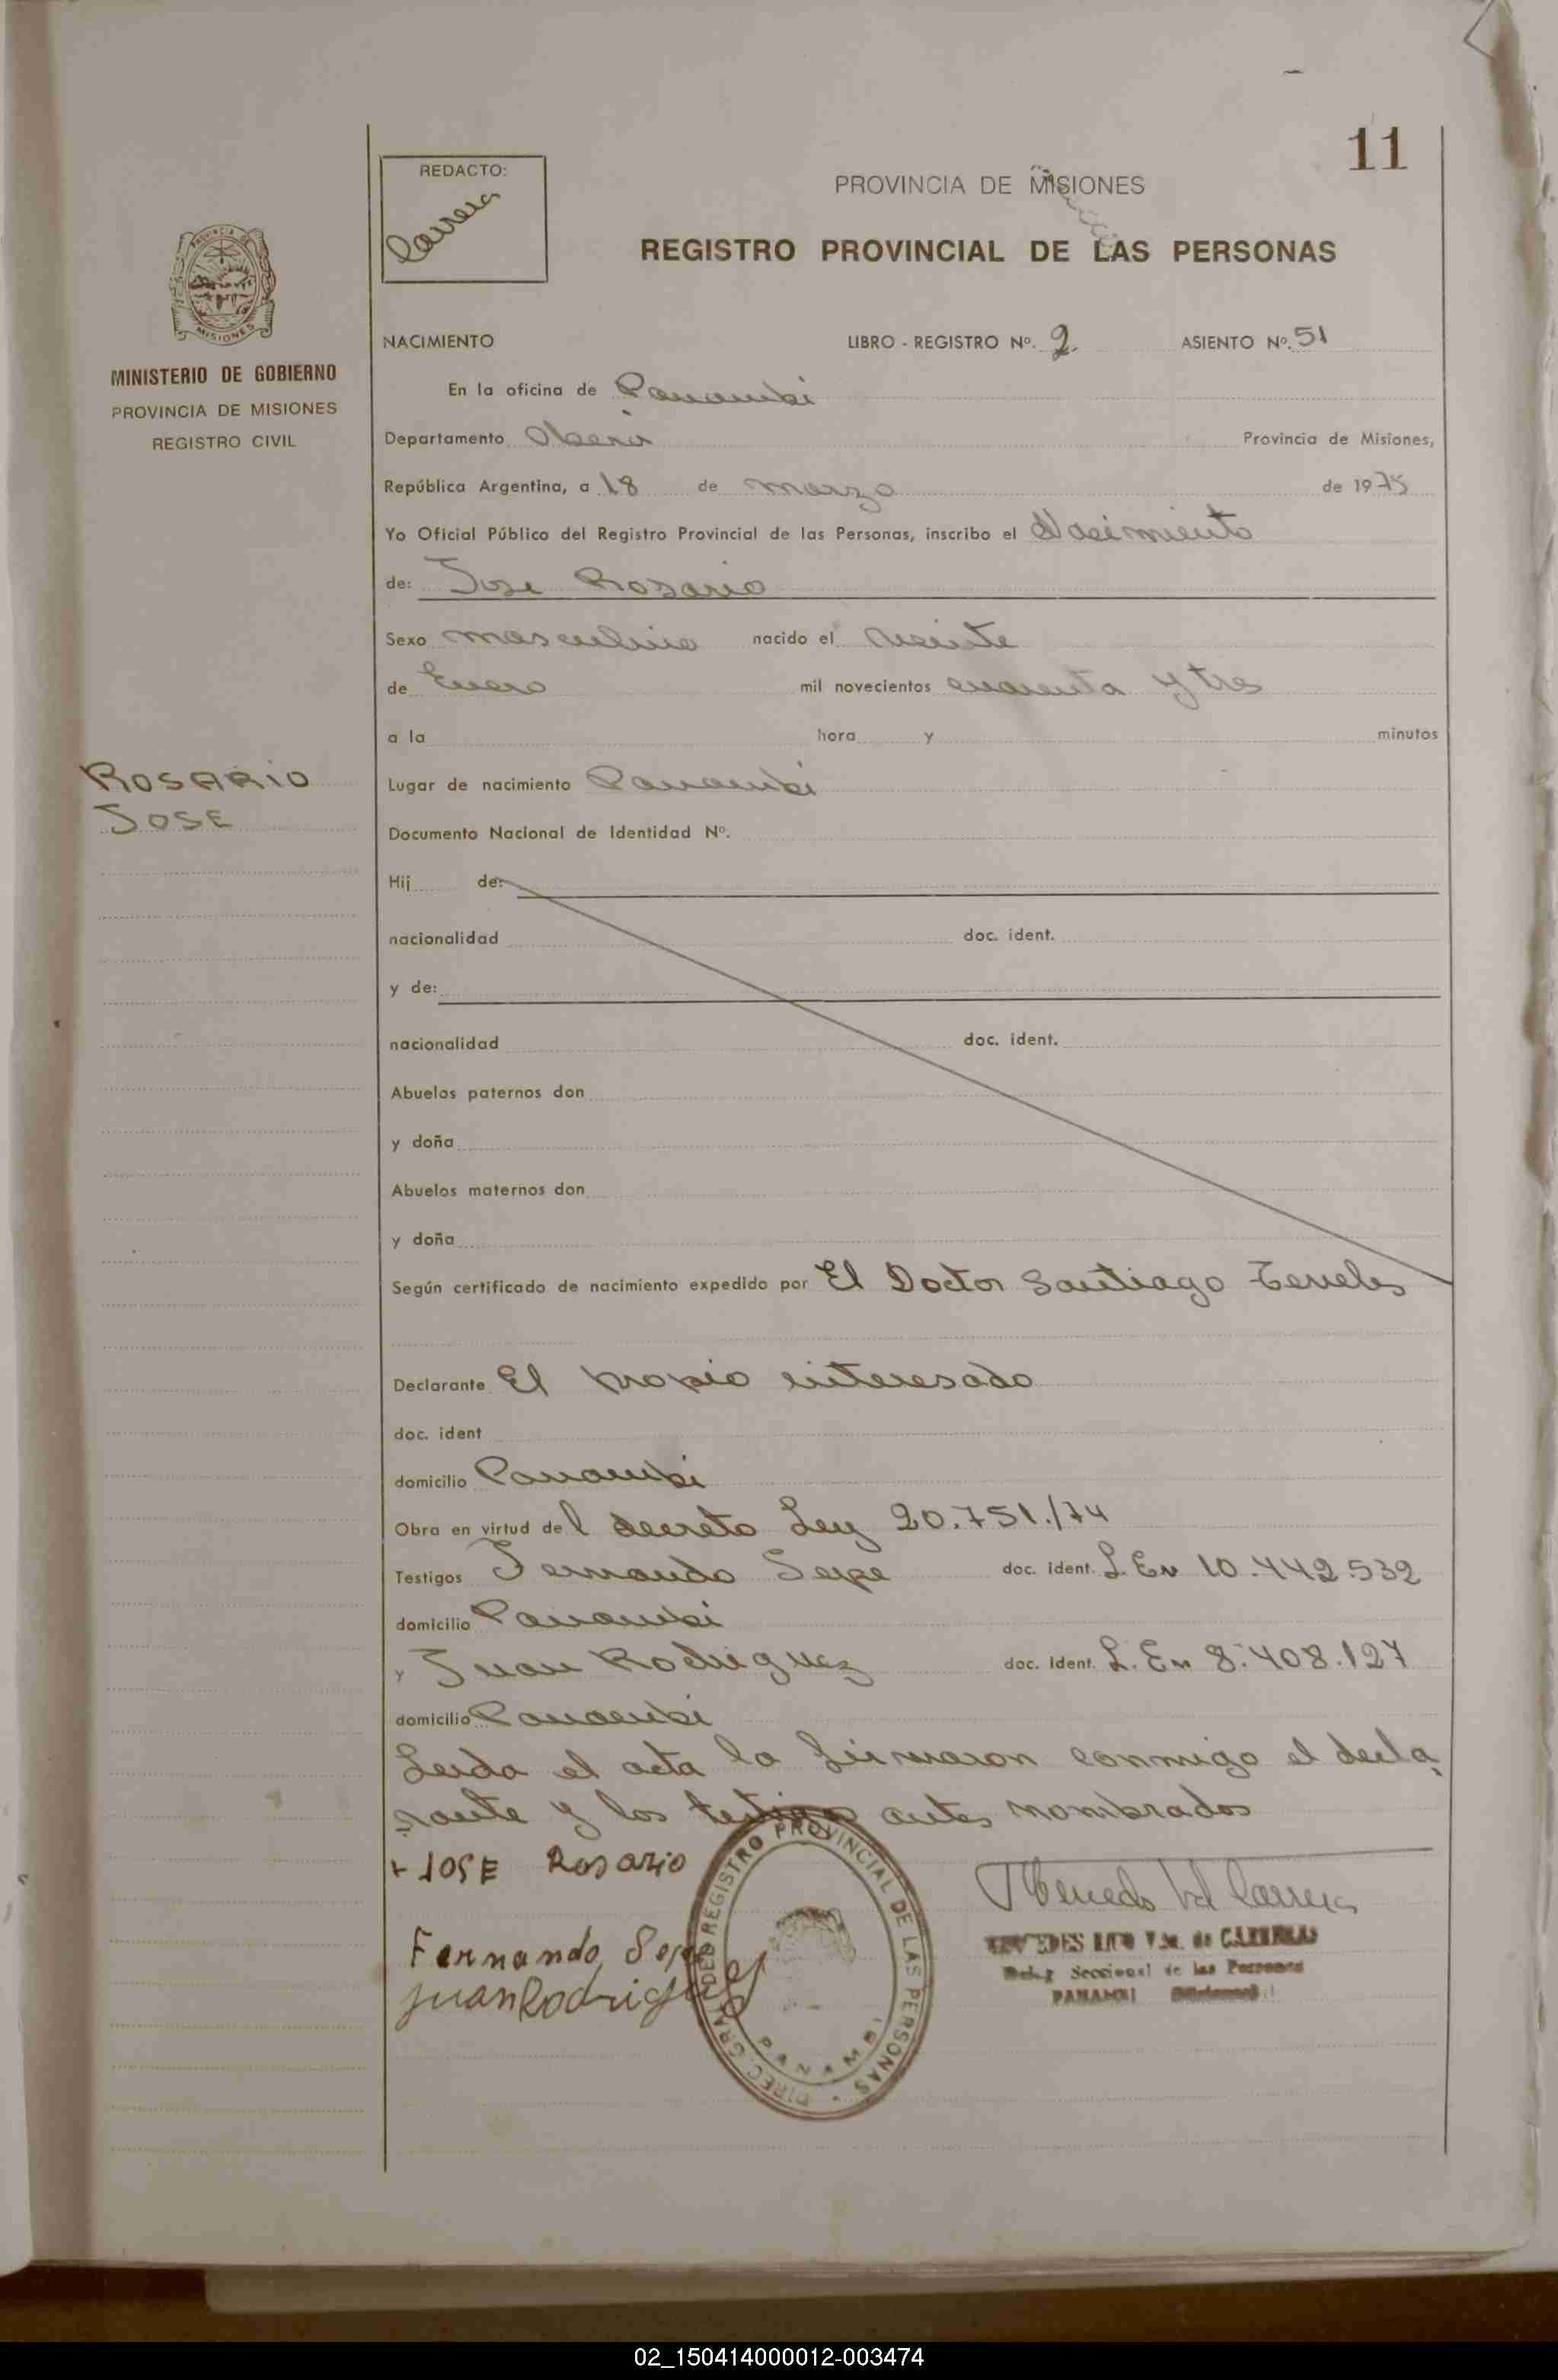 11
REDACTO:
Carrera
PROVINCIA DE MISIONES
REGISTRO PROVINCIAL DE LAS PERSONAS
PROVINCIA DE
MISIONES
MINISTERIO DE GOBIERNO
PROVINCIA DE MISIONES
REGISTRO CIVIL
NACIMIENTO LIBRO - REGISTRO Nº. 2. ASIENTO Nº. 51
En la oficina de Panambi
Departamento Obera Provincia de Misiones,
República Argentina, a 18 de marzo de 1975
Yo Oficial Público del Registro Provincial de las Personas, inscribo el Nacimiento
de: Jose Rosario
Sexo masculino nacido el veinte
de Enero mil novecientos cuarenta y tres
a la hora y minutos
ROSARIO
JOSE
Lugar de nacimiento Panambi
Documento Nacional de Identidad Nº.
Hij de:
nacionalidad doc. ident.
y de:
nacionalidad doc. ident.
Abuelos paternos don
y doña
Abuelos maternos don
y doña
Según certificado de nacimiento expedido por El Doctor Santiago
Declarante El propio interesado
doc. ident
domicilio Panambi
Obra en virtud del decreto Ley 20.751./74
Testigos Fernando doc. ident. L. En 10.442.532
domicilio Panambi
y Juan Rodriguez doc. ident. L. En 8.408.127
domicilio Panambi
Leida el acta la firmaron conmigo el decla
rante y los testigos antes nombrados
JOSE Rosario
Fernando
Juan Rodriguez
DIREC. GRAL. DEL REGISTRO PROVINCIAL DE LAS PERSONAS
PANAMBI
Carrera
Seccional de las Personas
PANAMBI (Misiones)
02_150414000012-003474